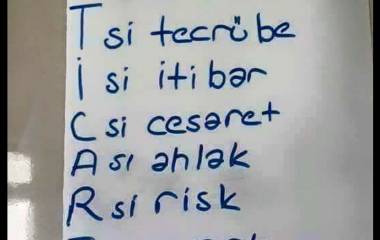 T si tecrübe
İ si itibar
C si cesaret
A sı ahlak
R si risk